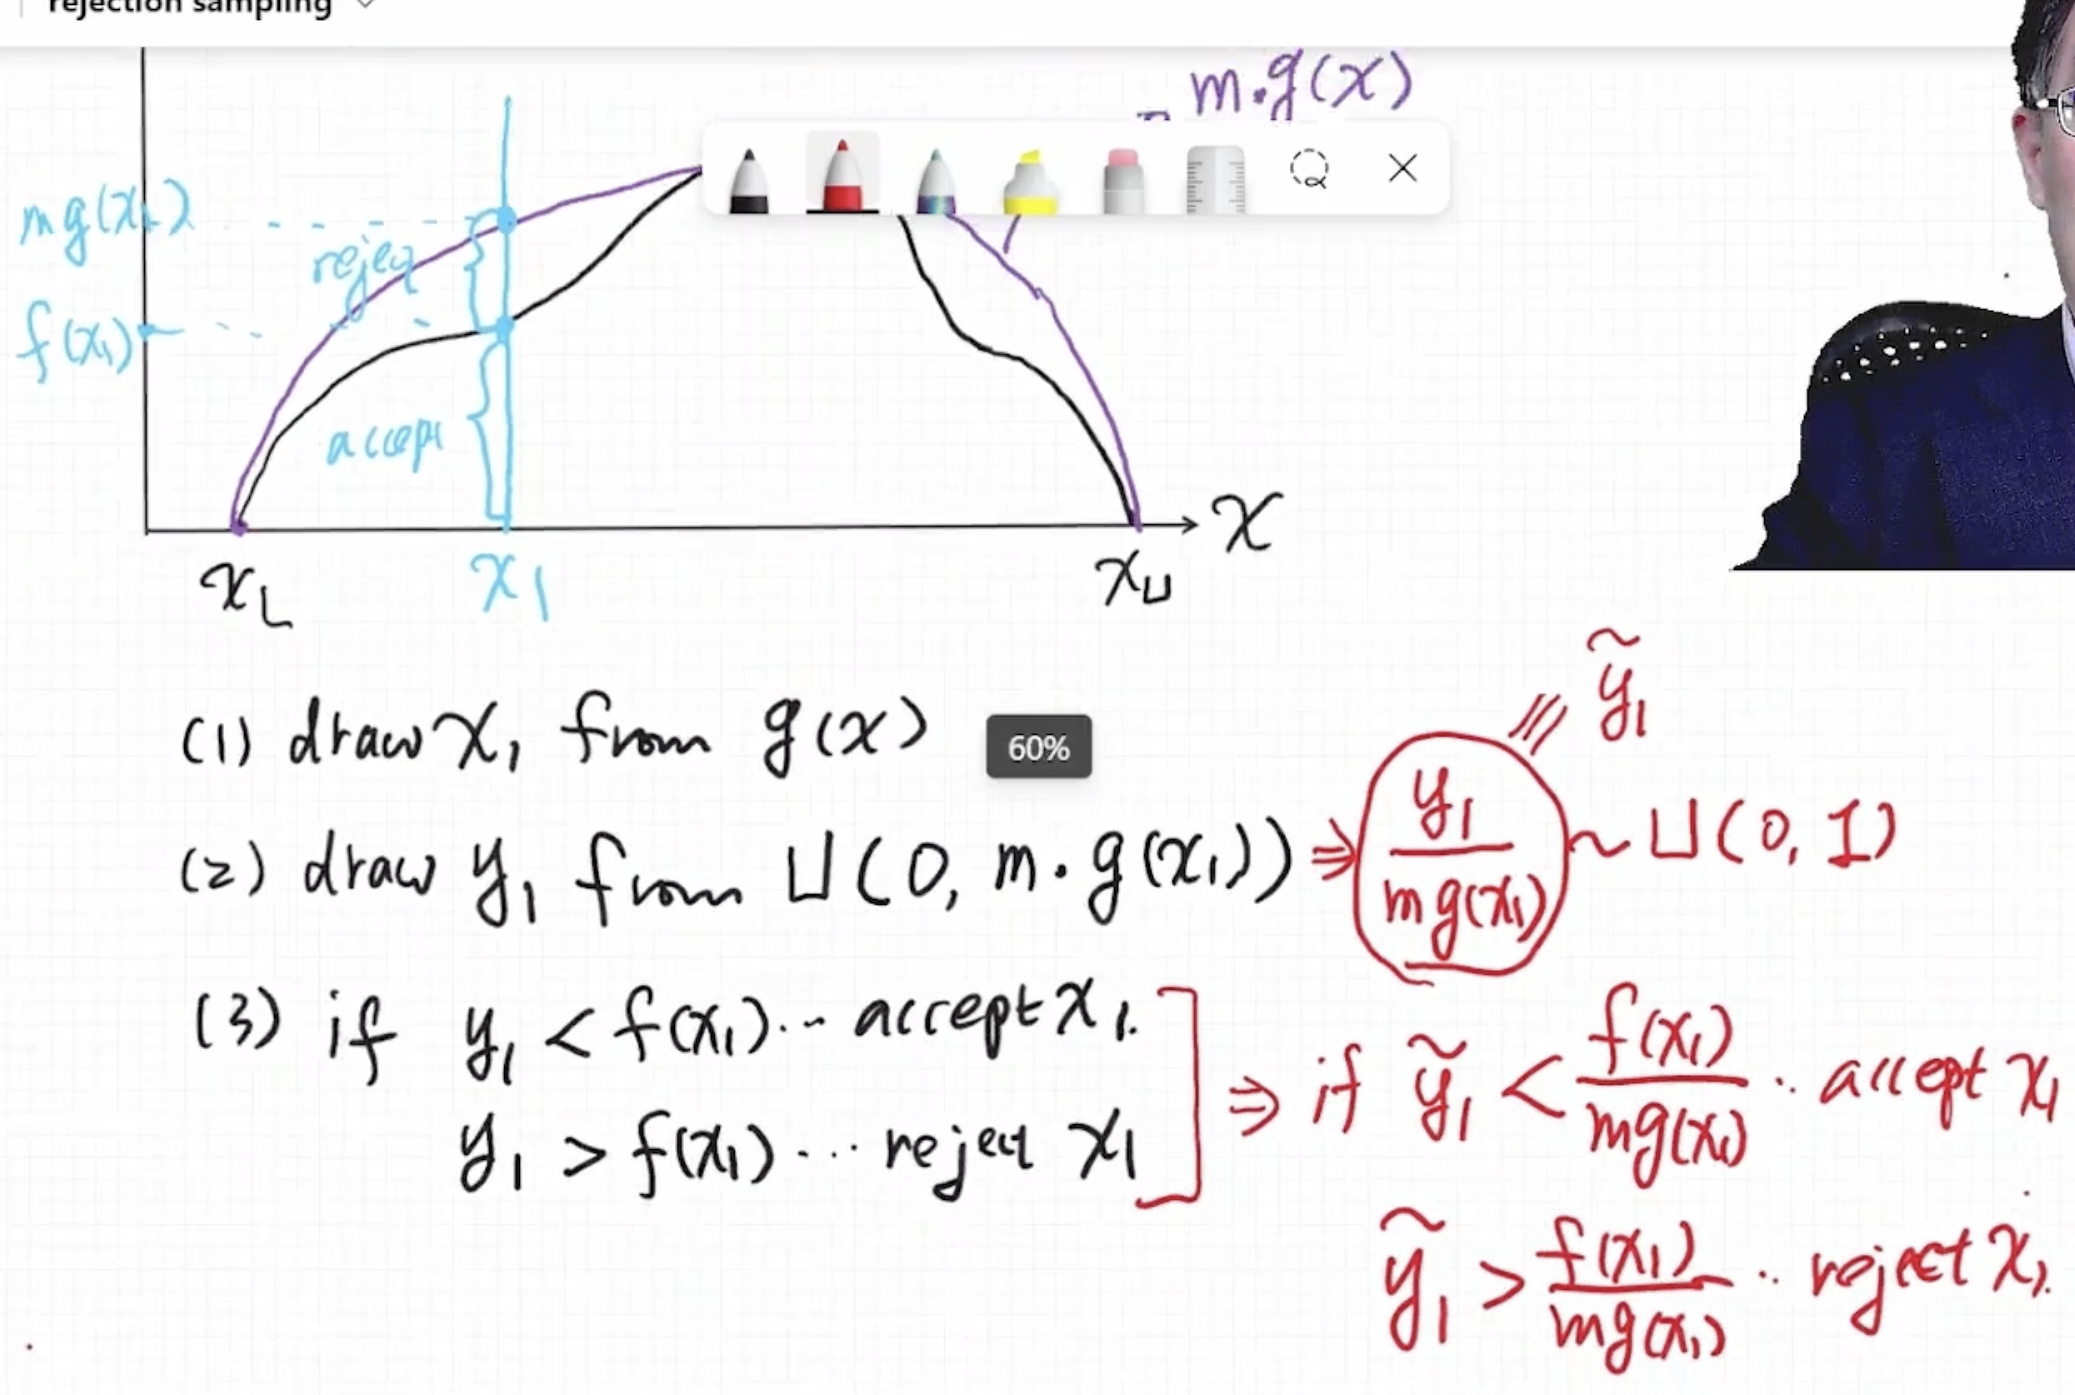 rejection sampling
m·g(x)
mg(x₁)
reject
f(x₁)
accept
x
x_L
x₁
x_U
(1) draw x₁ from g(x)
60%
ỹ₁
(2) draw y₁ from U(0, m·g(x₁)) ⇒ y₁/mg(x₁) ~ U(0, 1)
(3) if y₁ < f(x₁)... accept x₁.
y₁ > f(x₁)... reject x₁
⇒ if ỹ₁ < f(x₁)/mg(x₁) .. accept x₁
ỹ₁ > f(x₁)/mg(x₁) .. reject x₁.